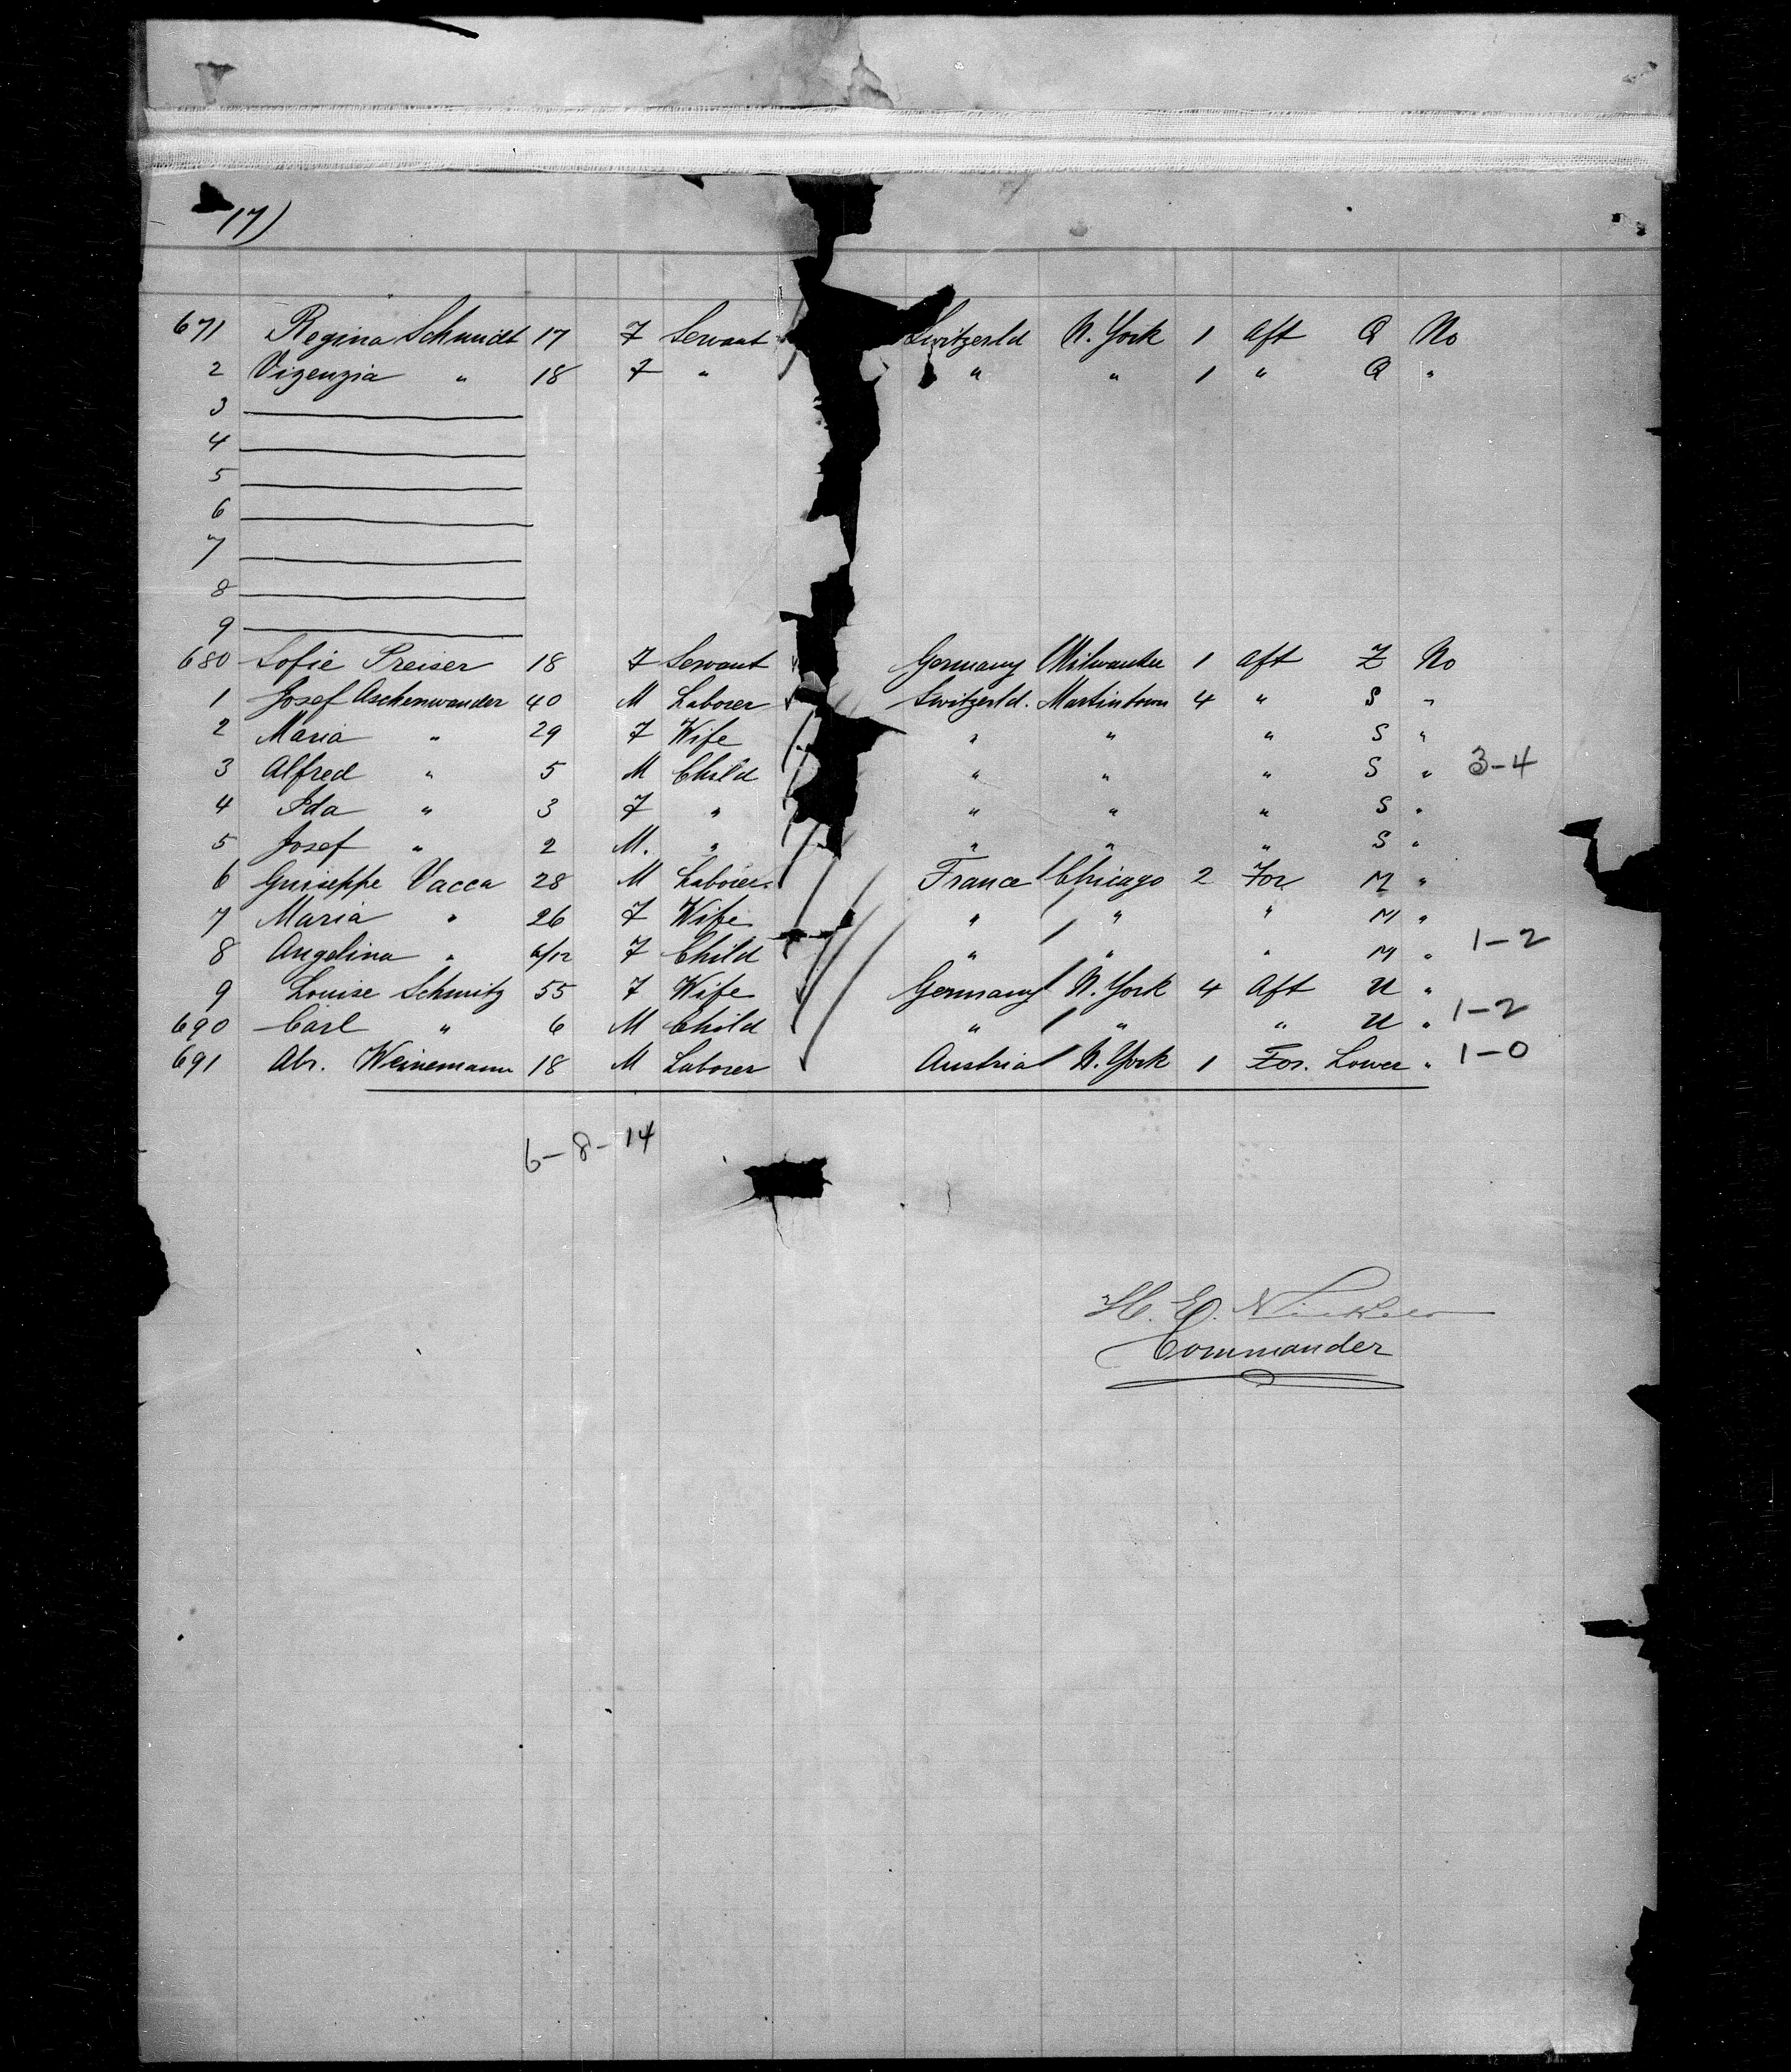 17)
671 Regina Schmidt 17 F Servant Switzerld N. York 1 Aft Q No
2 Vizenzia " 18 F " " " 1 " Q "
3
4
5
6
7
8
9
680 Sofie Preiser 18 F Servant Germany Milwaukee 1 Aft Z No
1 Josef Aschenwander 40 M Laborer Switzerld. Martintown 4 " S "
2 Maria " 29 F Wife " " " S "
3 Alfred " 5 M Child " " " S " 3-4
4 Ida " 3 F " " " " S "
5 Josef " 2 M. " " " " S "
6 Guiseppe Vacca 28 M Laborer France Chicago 2 For M "
7 Maria " 26 F Wife " " " M "
8 Angelina " 6/12 F Child " " " M " 1-2
9 Louise Schmitz 55 F Wife Germany N. York 4 Aft U "
690 Carl " 6 M Child " " " U " 1-2
691 Abr. Weinemann 18 M Laborer Austria N. York 1 For. Lower " 1-0
6-8-14
H. E.
Commander